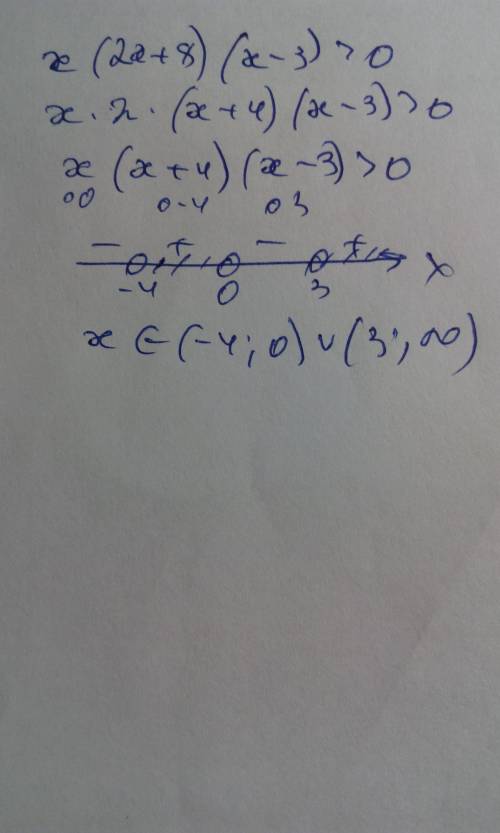 x (2x+8) (x-3) > 0
x · 2 · (x+4) (x-3) > 0
x (x+4) (x-3) > 0
○0 ○-4 ○3
- + - +
-4 0 3 x
x ∈ (-4; 0) ∪ (3; ∞)